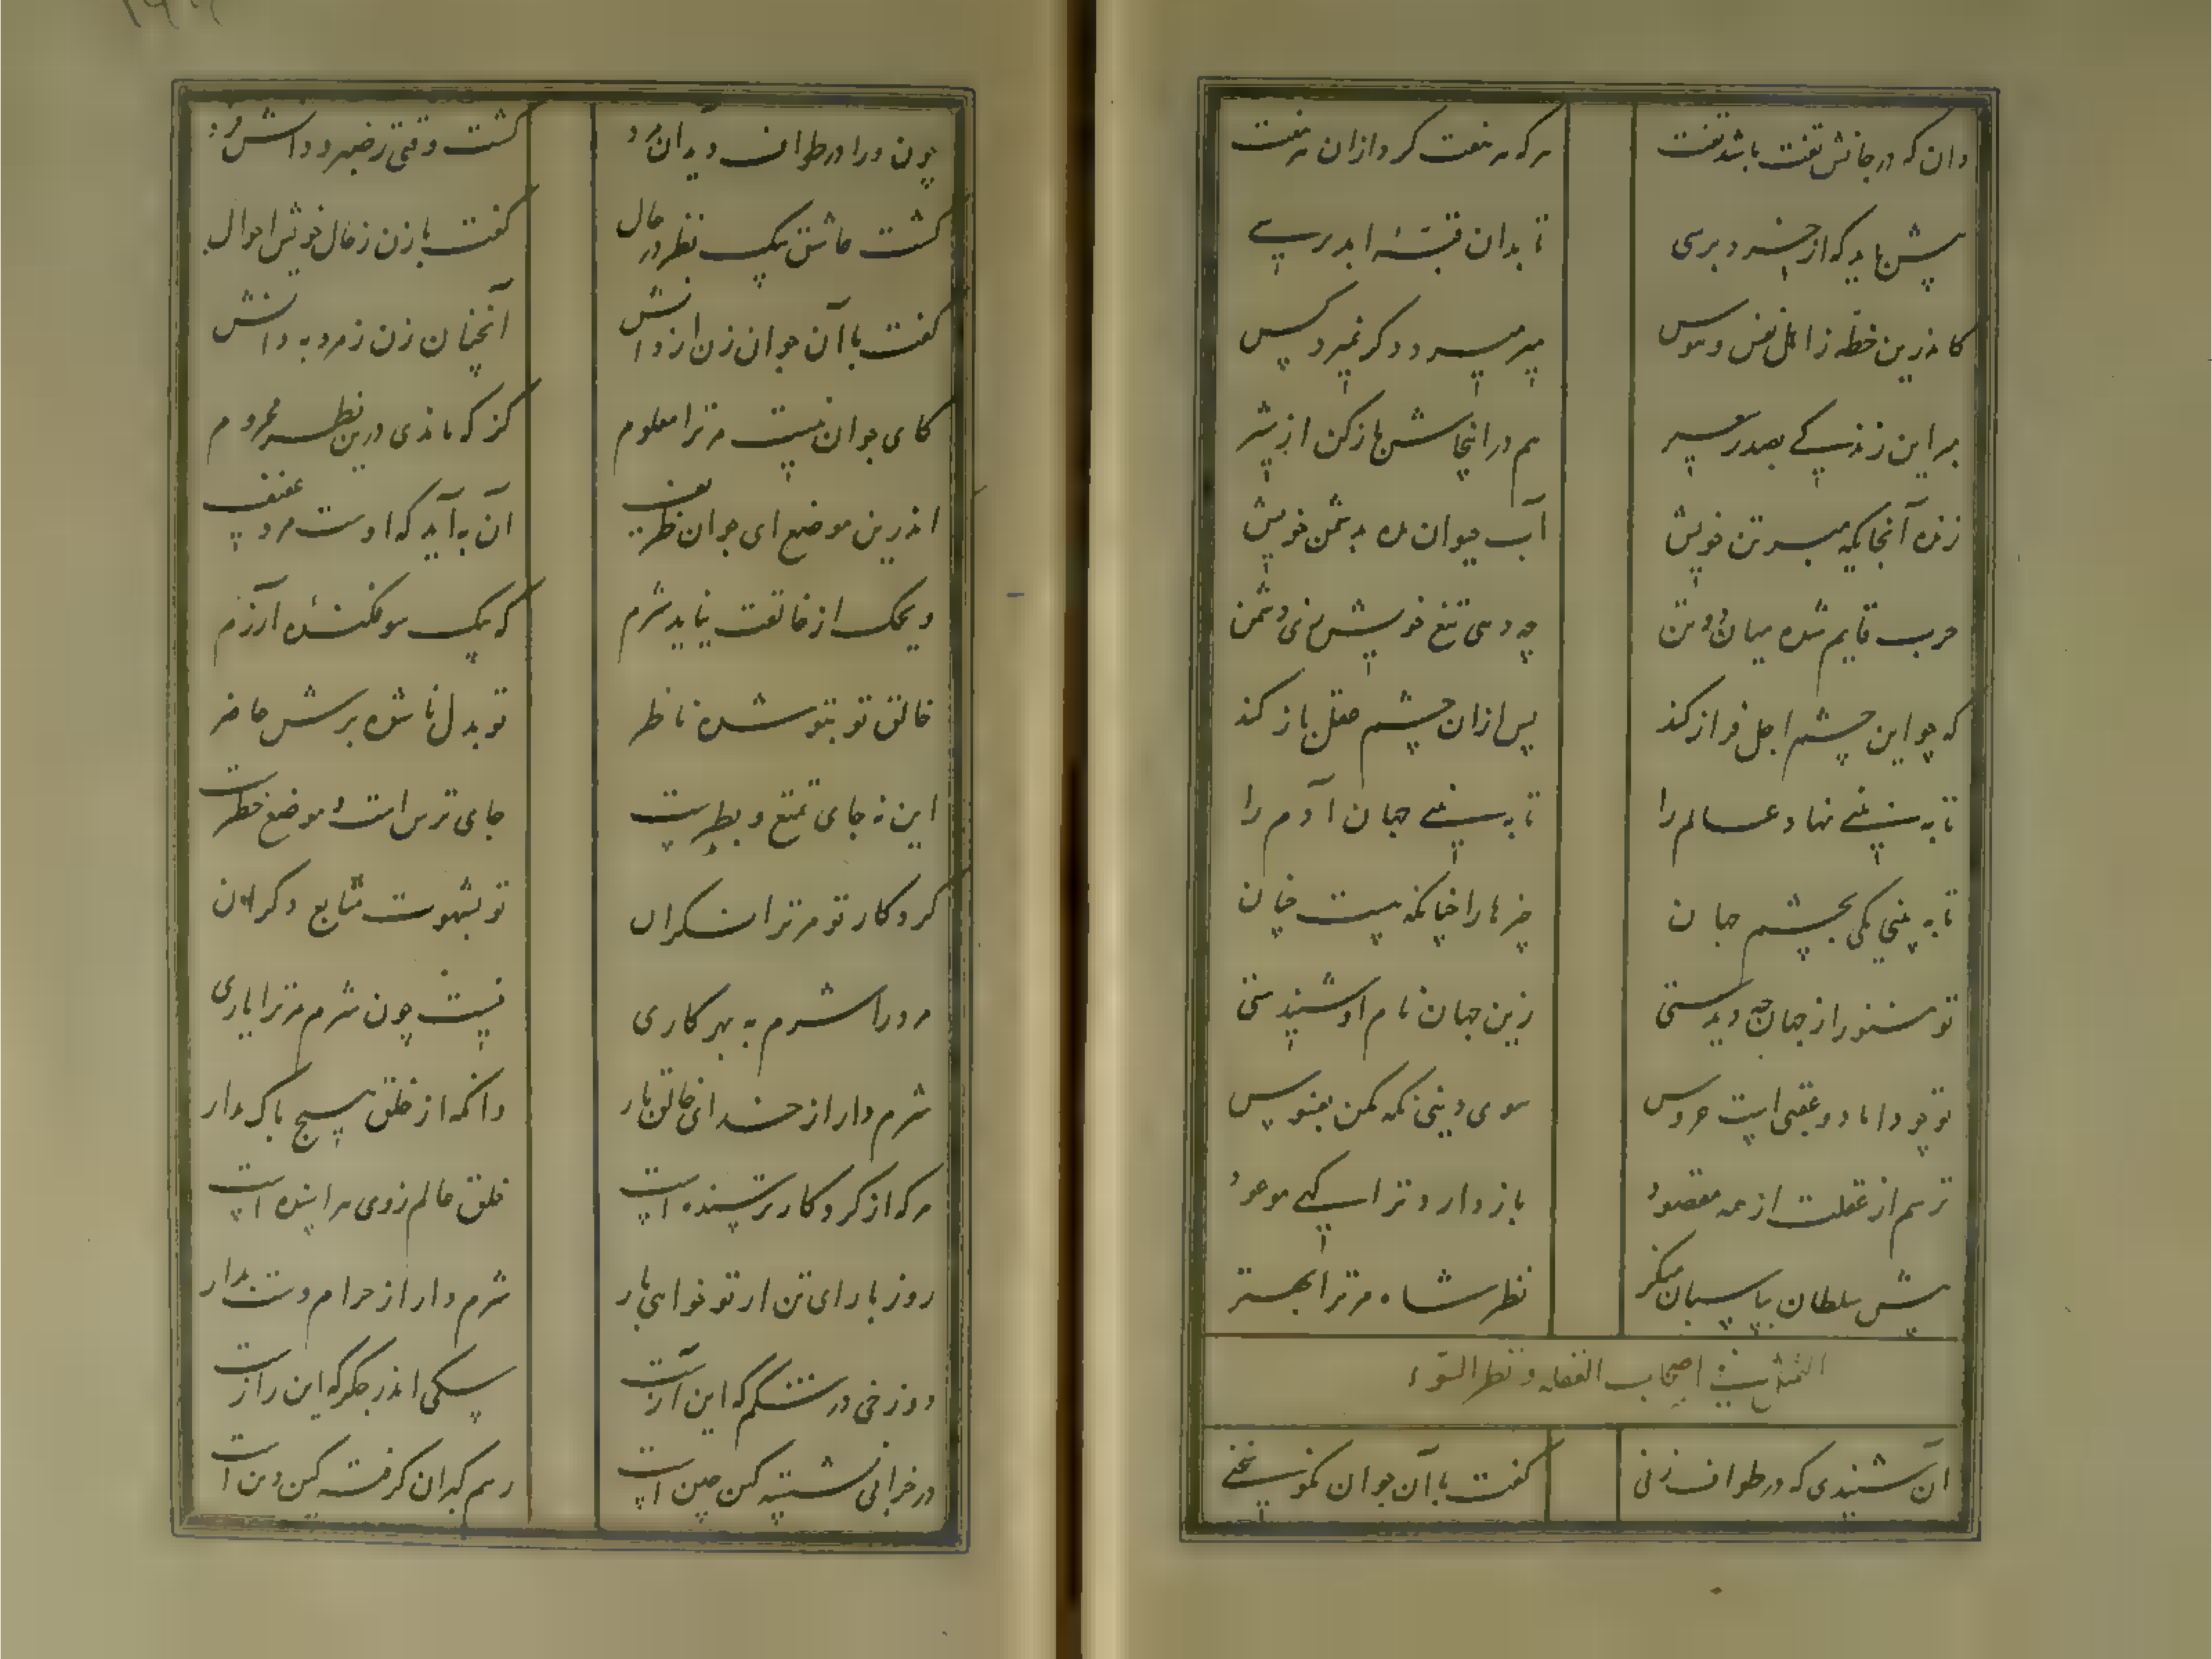 وان که در جانش تفت باشد تفت
هر که بر هفت کرد ازان بر هفت
پیش باید که از خسرو برسی
تا بدان قبهٔ ابد رسی
کاندرین خطه ز اهل نفس و هوس
میر میرد دگر نمیرد کس
هم درانجاش باز کن از شر
زنده آنجا که میبر تن خویش
آب حیوان مده بدشمن خویش
حرب قایم شده میان دو تن
چه دهی تیغ خویش زی دشمن
که چو این چشم اجل فراز کند
پس ازان چشم عقل باز کند
تا به بینی نهاد عالم را
تا به بینی جهان آدم را
تا به بینی یکی بچشم جهان
چیزها را چنانکه هست چنان
تو هنوز از جهان چه دیدستی
زین جهان نام او شنیدستی
تو چو داماد و عقبی است عروس
سوی دنیی نگه مکن بفسوس
ترسم از غفلت از همه مقصود
باز دارد ترا کسی موعود
پیش سلطان بپاسبان منگر
نظر شاه مر ترا بهتر
التمثیل فی اصحاب الغفلة و نظر السوء
آن شنیدی که در طواف زنی
گفت با آن جوان نکو سخنی
چون ورا در طواف دید آن مرد
گشت وقتی ز خیر و دانش فرد
گشت عاشق بیک نظر در حال
گفت با زن ز حال خویش احوال
گفت با آن جوان زن از دانش
آنچنان زن ز مرد به دانش
کای جوان نیست مر ترا معلوم
کز که ماندی درین نظر محروم
اندرین موضع ای جوان ظریف
آن به آید که اوست مرد عفیف
ویحک از خالقت نیاید شرم
که بیک سو فکنده آزرم
خالق تو بتو شده ناظر
تو بدل ناشده برش حاضر
این نه جای تمتع و بطرست
جای ترس است و موضع خطرست
کردگار تو مر ترا نگران
تو بشهوت متابع دگران
مرد را شرم به بهر کاری
نیست چون شرم مر ترا یاری
شرم دار از خدای خالق بار
وانکه از خلق هیچ باک مدار
هر که از کردگار ترسنده است
خلق عالم ز وی هراسنده است
روز بار ای تن ار تو خواهی بار
شرم دار از حرام دست بدار
دوزخی در شکم که این آزست
سگی اندر جگر که این رازست
در خرابی نشسته کین چین است
رسم گبران گرفته کین دین است